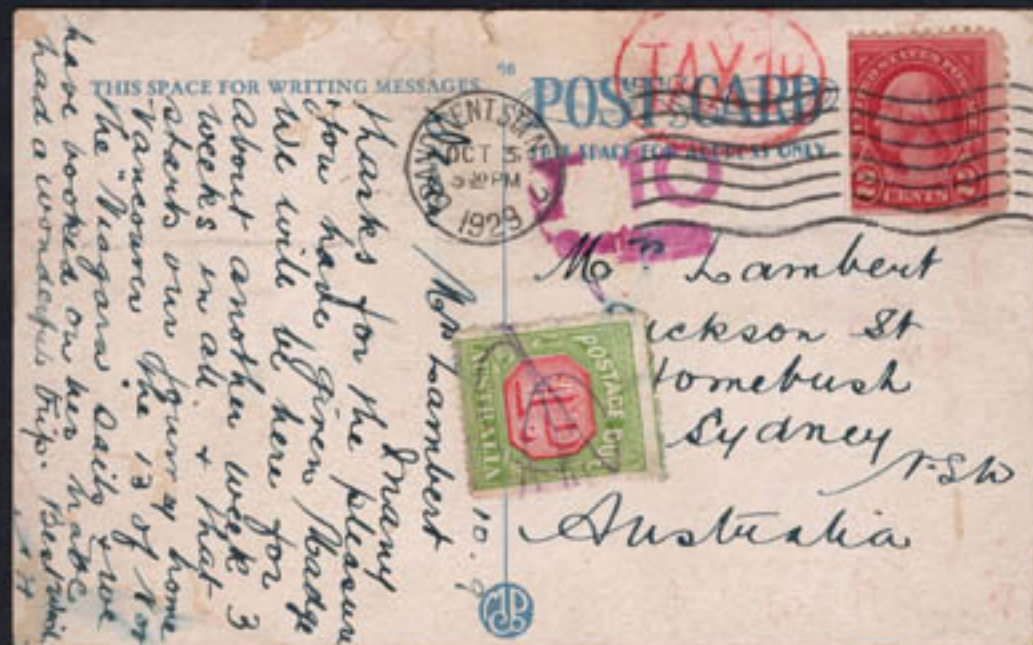 THIS SPACE FOR WRITING MESSAGES
POST CARD
THIS SPACE FOR ADDRESS ONLY
TAX
T 10
OCT 5
5 30 PM
1929
UNITED STATES POSTAGE
2 CENTS 2
AUSTRALIA
POSTAGE DUE
Lambert
Jackson St
Homebush
Sydney
N.S.W
Australia
Mr & Mrs Lambert
Many
thanks for the pleasure
you have given Madge
We will be here for
about another week 3
weeks in all & that
starts our journey home
Vancouver the 13 of Nov
the "Niagara" Sails & we
have booked on her
had a wonderful trip. Best